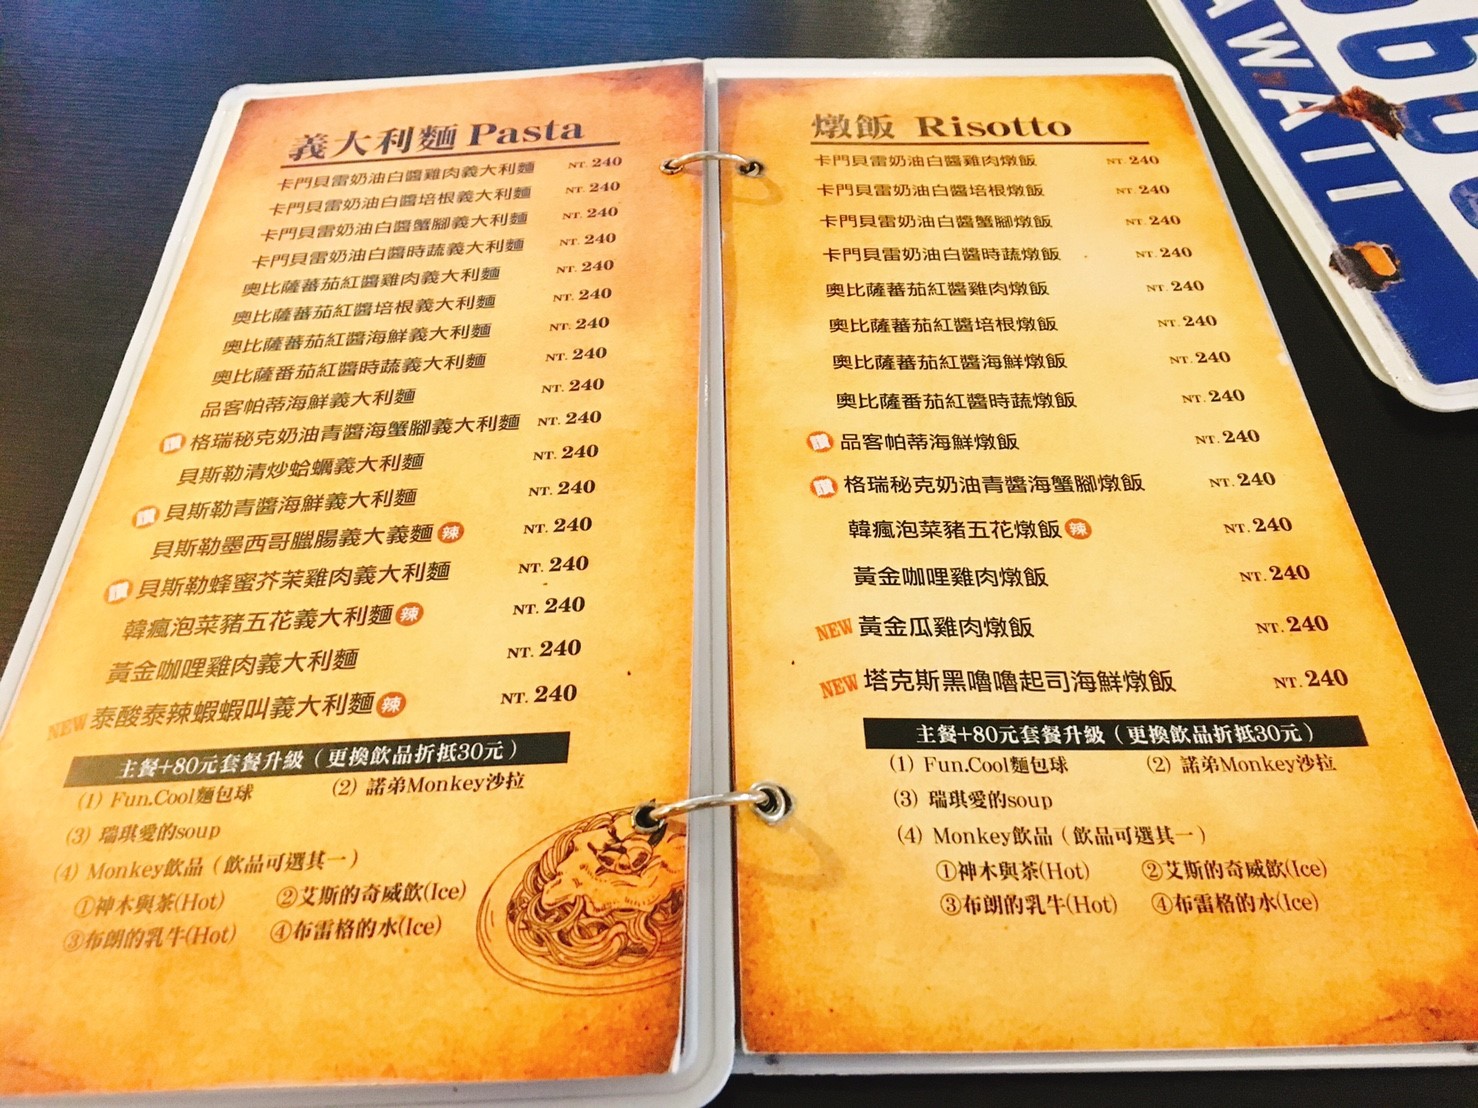 義大利麵 Pasta
卡門貝雷奶油白醬雞肉義大利麵 NT. 240
卡門貝雷奶油白醬培根義大利麵 NT. 240
卡門貝雷奶油白醬蟹腳義大利麵 NT. 240
卡門貝雷奶油白醬時蔬義大利麵 NT. 240
奧比薩蕃茄紅醬雞肉義大利麵 NT. 240
奧比薩蕃茄紅醬培根義大利麵 NT. 240
奧比薩蕃茄紅醬海鮮義大利麵 NT. 240
奧比薩番茄紅醬時蔬義大利麵 NT. 240
品客帕蒂海鮮義大利麵 NT. 240
讚 格瑞秘克奶油青醬海蟹腳義大利麵 NT. 240
貝斯勒清炒蛤蠣義大利麵 NT. 240
讚 貝斯勒青醬海鮮義大利麵 NT. 240
貝斯勒墨西哥臘腸義大義麵 辣 NT. 240
讚 貝斯勒蜂蜜芥茉雞肉義大利麵 NT. 240
韓瘋泡菜豬五花義大利麵 辣 NT. 240
黃金咖哩雞肉義大利麵 NT. 240
NEW 泰酸泰辣蝦蝦叫義大利麵 辣 NT. 240
主餐+80元套餐升級（更換飲品折抵30元）
(1) Fun.Cool麵包球 (2) 諾弟Monkey沙拉
(3) 瑞琪愛的soup
(4) Monkey飲品（飲品可選其一）
①神木與茶(Hot) ②艾斯的奇威飲(Ice)
③布朗的乳牛(Hot) ④布雷格的水(Ice)
燉飯 Risotto
卡門貝雷奶油白醬雞肉燉飯 NT. 240
卡門貝雷奶油白醬培根燉飯 NT. 240
卡門貝雷奶油白醬蟹腳燉飯 NT. 240
卡門貝雷奶油白醬時蔬燉飯 NT. 240
奧比薩蕃茄紅醬雞肉燉飯 NT. 240
奧比薩蕃茄紅醬培根燉飯 NT. 240
奧比薩蕃茄紅醬海鮮燉飯 NT. 240
奧比薩番茄紅醬時蔬燉飯 NT. 240
讚 品客帕蒂海鮮燉飯 NT. 240
讚 格瑞秘克奶油青醬海蟹腳燉飯 NT. 240
韓瘋泡菜豬五花燉飯 辣 NT. 240
黃金咖哩雞肉燉飯 NT. 240
NEW 黃金瓜雞肉燉飯 NT. 240
NEW 塔克斯黑嚕嚕起司海鮮燉飯 NT. 240
主餐+80元套餐升級（更換飲品折抵30元）
(1) Fun.Cool麵包球 (2) 諾弟Monkey沙拉
(3) 瑞琪愛的soup
(4) Monkey飲品（飲品可選其一）
①神木與茶(Hot) ②艾斯的奇威飲(Ice)
③布朗的乳牛(Hot) ④布雷格的水(Ice)
AWAII